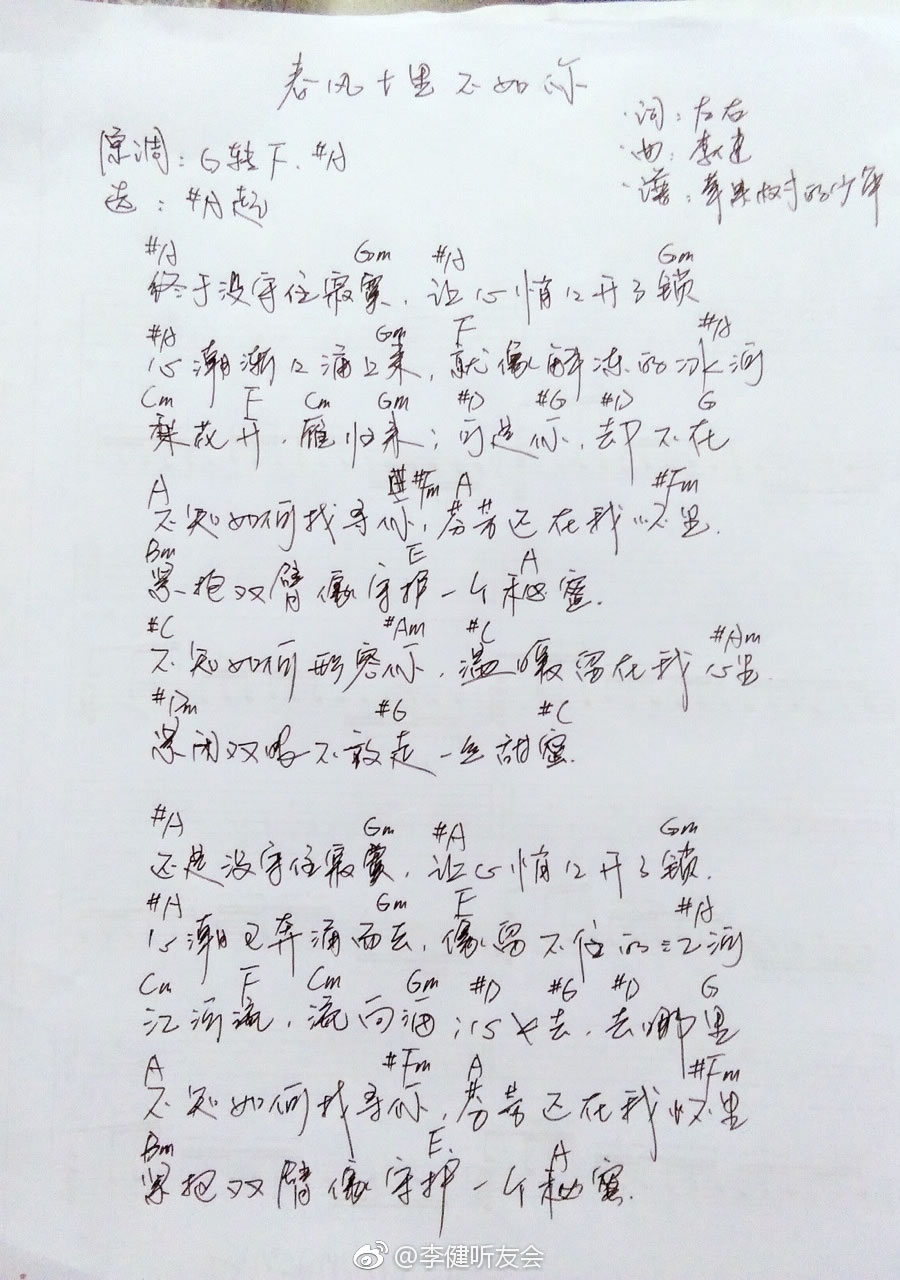 春风十里不如你
·词：左右
原调：G转F、#A
·曲：李健
选：#A起
·谱：苹果树的少年
#A Gm #A Gm
终于没守住寂寞，让心悄々开了锁
#A Gm F #A
心潮渐々涌上来，就像解冻的冰河
Cm F Cm Gm #D #G #D G
梨花开，雁归来；可是你，却不在
A #Fm A #Fm
不知如何找寻你，芬芳还在我怀里.
Bm E A
紧抱双臂像守护一个秘密.
#C #Am #C #Am
不知如何形容你，温暖留在我心里
#Dm #G #C
紧闭双眼不敢走一丝甜蜜.
#A Gm #A Gm
还是没守住寂寞，让心悄々开了锁.
#A Gm F #A
心潮已奔涌而去，像留不住的江河
Cm F Cm Gm #D #G #D G
江河流，流向海；心失去，去哪里
A #Fm A #Fm
不知如何找寻你，芬芳还在我怀里
Bm E. A
紧抱双臂像守护一个秘密.
@李健听友会